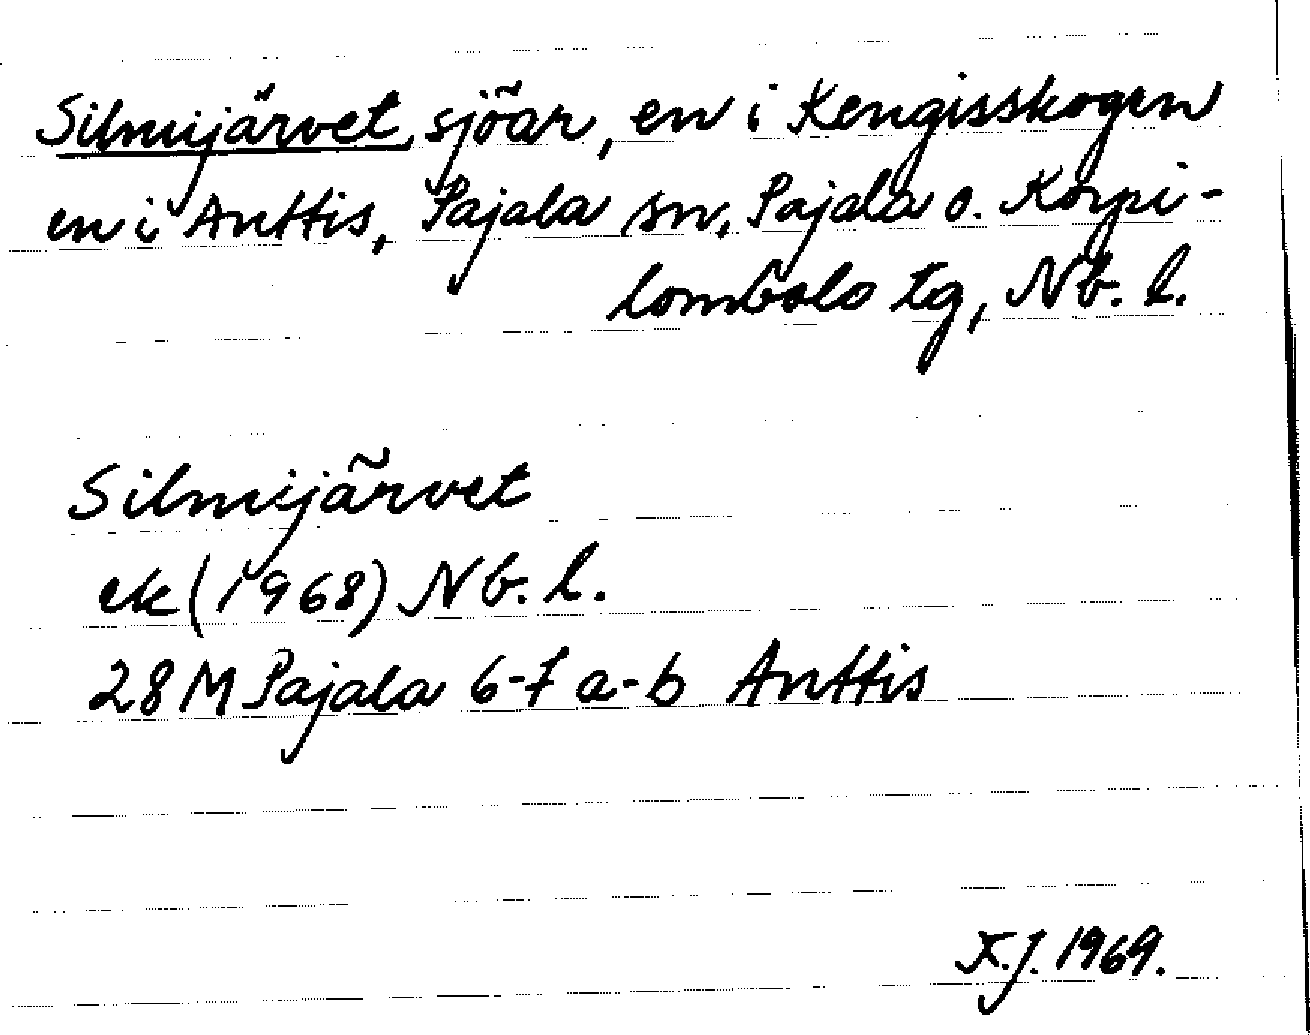 Silmijärvet, sjöar, en i Kengisskogen
en i Anttis, Pajala sn, Pajala o. Korpi-
lombolo tg, Nb. l.
Silmijärvet
ek (1968) Nb. l.
28 M Pajala 6-7 a-b Anttis
K.J. 1969.